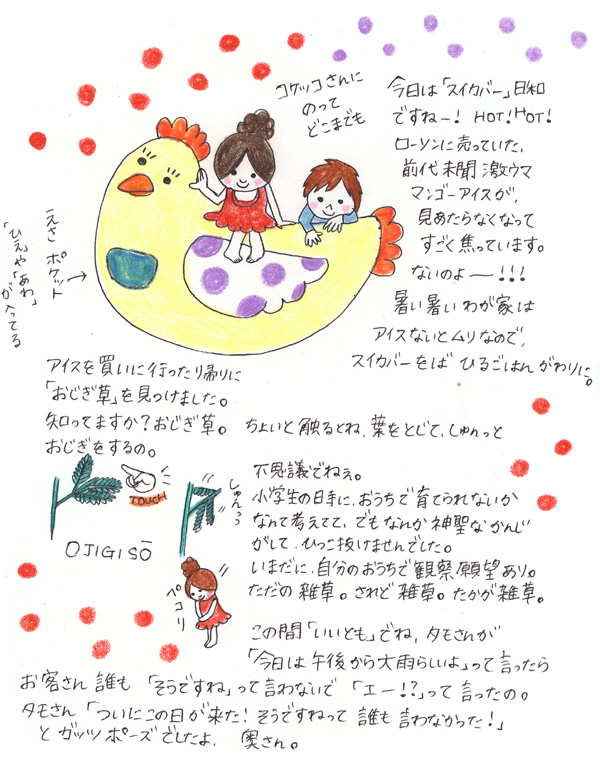 コケッコさんに
のって
どこまでも
今日は「スイカバー」日和
ですねー! HOT! HOT!
ローソンに売っていた、
前代未聞 激ウマ
マンゴーアイスが、
見あたらなくなって
すごく焦っています。
ないのよ―!!!
暑い暑い わが家は
アイスないとムリなので、
スイカバーをば ひるごはんがわりに。
えさ ポケット
「ひえ」や「あわ」
が入ってる
アイスを買いに行ったり帰りに
「おじぎ草」を見つけました。
知ってますか?おじぎ草。 ちょいと触るとね、葉をとじて、しゅんっと
おじぎをするの。
TOUCH
しゅんっっ
OJIGISŌ
ペコリ
不思議でねぇ。
小学生の日手に、おうちで育てられないか
なんて考えてて、でもなんか神聖なかんじ
がして、ひっこ抜けませんでした。
いまだに、自分のおうちで観察願望あり。
ただの雑草。されど雑草。たかが雑草。
この間「いいとも」でね、タモさんが
「今日は午後から大雨らしいよ」って言ったら
お客さん誰も「そうですね」って言わないで「エー!?」って言ったの。
タモさん「ついにこの日が来た!そうですねって誰も言わなかった!」
とガッツポーズでしたよ、 奥さん。